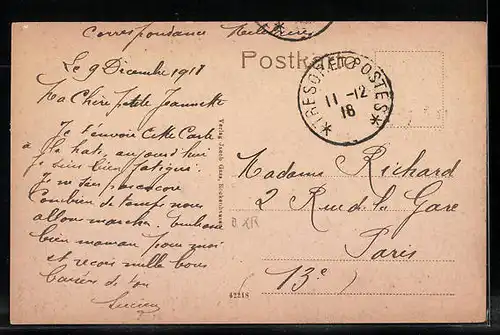 Correspondance Militaire
Postkarte
Le 9 Décembre 1918
Ma Chère petite Jeannette
Je t'envoie cette Carte
à la hate aujourd'hui
Je suis bien fatigué.
Je ne sais pas encore
Combien de temps nous
allons marcher. Embrasse
bien maman pour moi
et recois mille bons
baisers de ton
Lucien
Verlag Jacob
TRESOR ET POSTES
11-12
18
Madame Richard
2 Rue de la Gare
Paris
13e
42248